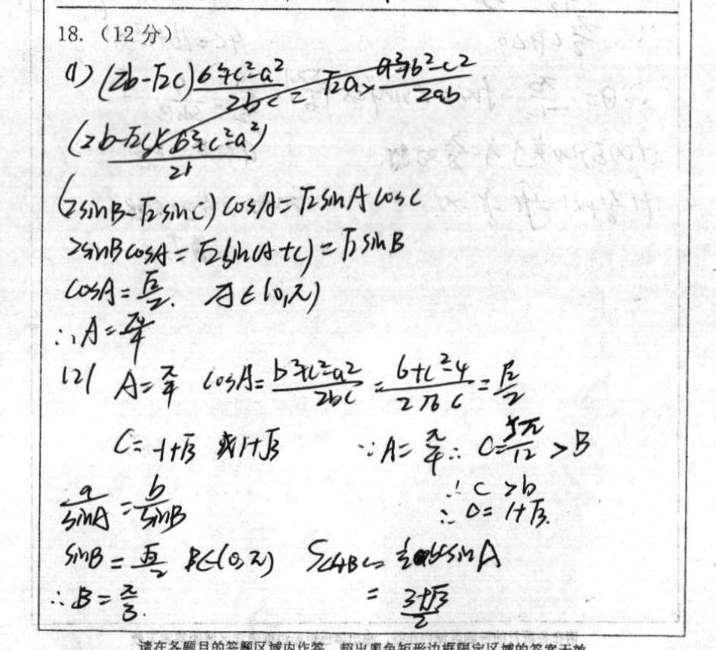 18.（12分）
(1) (2b-√2c) (b²+c²-a²)/(2bc) = √2a × (a²+b²-c²)/(2ab)
(2b-√2c)(b²+c²-a²)/2b
(2sinB-√2sinC) cosA=√2sinA cosC
2sinBcosA = √2sin(A+C) = √2sinB
cosA = √2/2. A∈(0,π)
∴A=π/4
(2) A=π/4 cosA= (b²+c²-a²)/(2bc) = (6+c²-4)/(2√6 c) = √2/2
C=-1+√3 或1+√3 ∵A=π/4 ∴ C=5π/12 >B
a/sinA = b/sinB ∴ c >b
∴ C= 1+√3.
sinB = √3/2 B∈(0,π) S△ABC = ½ bcsinA
∴B=π/3. = (3+√3)/2
请在各题目的答题区域内作答，超出黑色矩形边框限定区域的答案无效